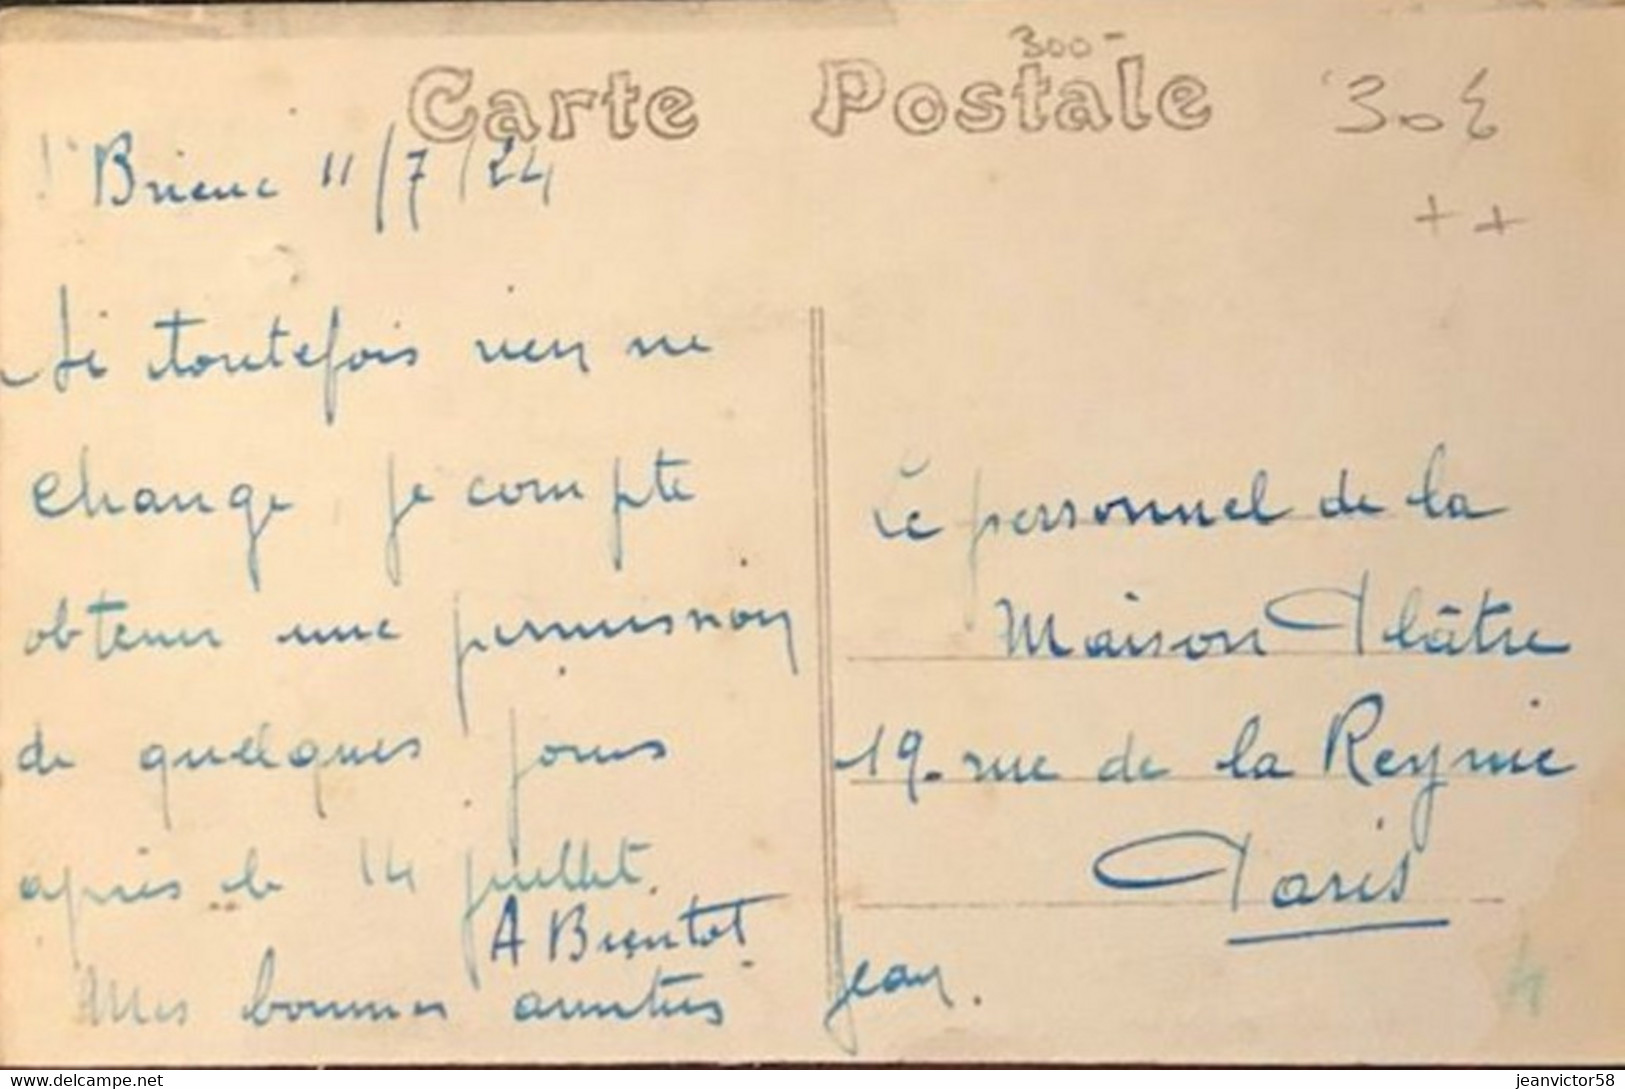 Carte Postale
300-
30€
++
Brieuc 11/7/24
Si toutefois rien ne
change, je compte
obtenir une permission
de quelques jours
après le 14 juillet.
A Bientot
Mes bonnes amitiés Jean.
Le personnel de la
Maison Plâtre
19. rue de la Reynie
Paris
jeanvictor58